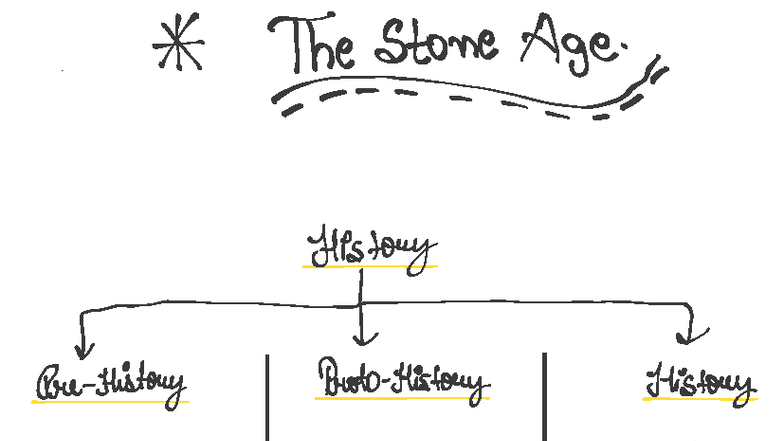 * The Stone Age.
History
Pre-History
Proto-History
History